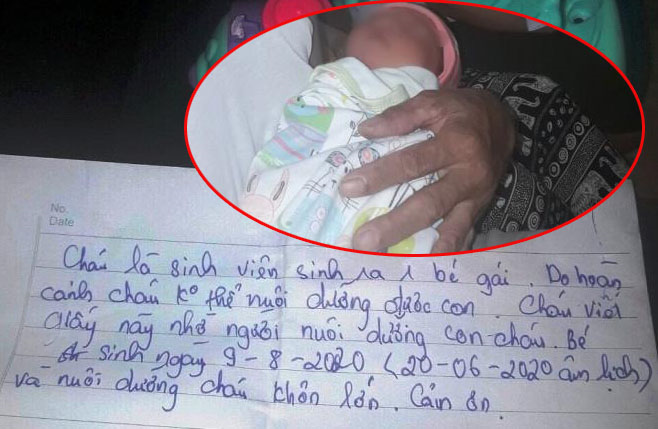 No.
Date
Cháu là sinh viên sinh ra 1 bé gái. Do hoàn
cảnh cháu ko thể nuôi dưỡng được con. Cháu viết
giấy này nhờ người nuôi dưỡng con cháu. Bé
sinh ngày 9-8-2020 (20-06-2020 âm lịch)
và nuôi dưỡng cháu khôn lớn. Cám ơn.